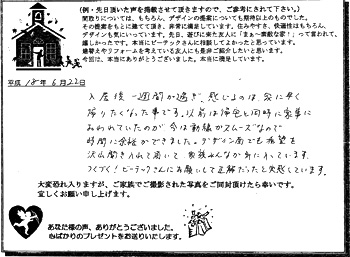 (例・先日頂いた声を掲載させて頂きますので、ご参考にされて下さい。)
間取りについては、もちろん、デザインの提案についても期待以上のものでした。
その提案をもとに建てて頂き、非常に満足しています。住みやすさ、快適性はもちろん、
デザインも気にいっています。先日、遊びに来た友人に「まぁ〜素敵な家!」って言われて、
嬉しかったです。本当にビーテックさんに相談してよかったと思っています。
建替えやリフォームを考えている友人にも是非ご紹介したいと思います。
今回は、本当にありがとうございました。本当に満足しています。
平成 18年 6月22日
入居後一週間が過ぎ、感じるのは家に早く
帰りたくなった事です。以前は帰宅と同時に家事に
おわれていたのが今は動線がスムーズなので
時間に余裕ができました。デザイン面でも希望を
沢山聞き入れて頂いて家族みんな
つくづく!ビーテックさんにお願いして正解だったと実感しています。
大変恐れ入りますが、ご家族でご撮影された写真をご同封頂けたら幸いです。
宜しくお願い申し上げます。
あなた様の声、ありがとうございました。
心ばかりのプレゼントをお送りいたします。